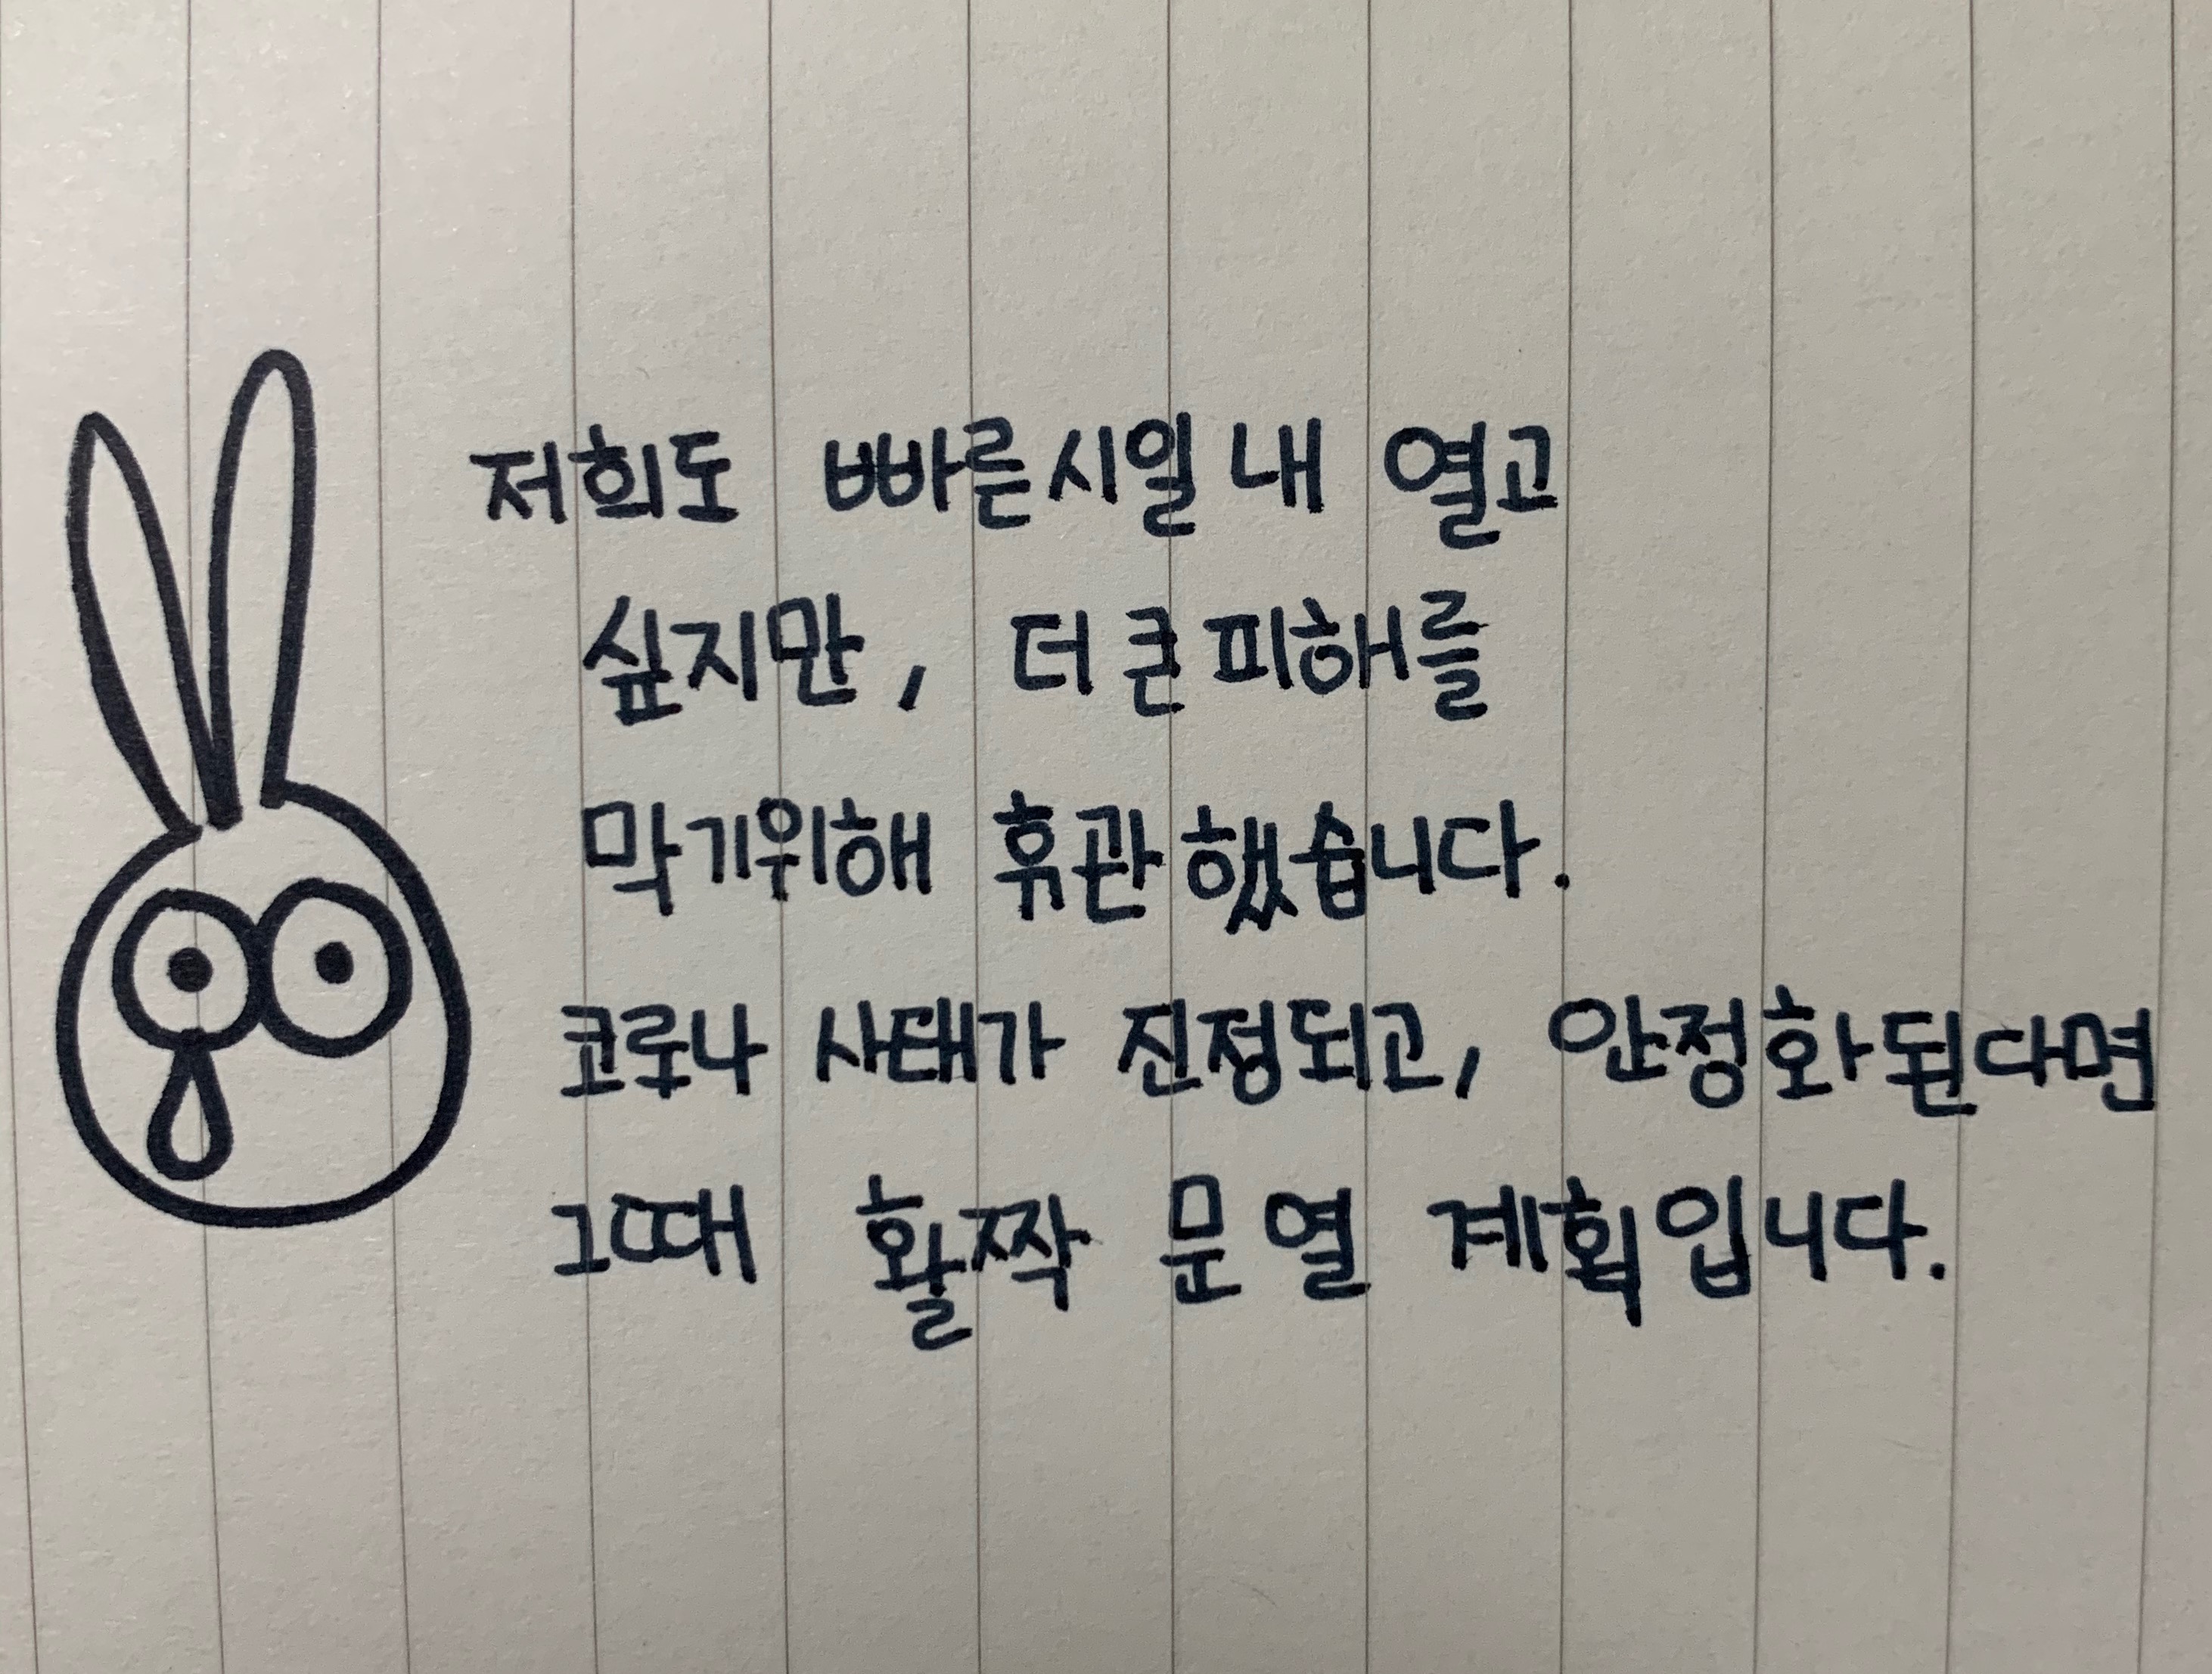 저희도 빠른시일 내 열고
싶지만, 더 큰 피해를
막기위해 휴관 했습니다.
코로나 사태가 진정되고, 안정화 된다면
그때 활짝 문 열 계획입니다.